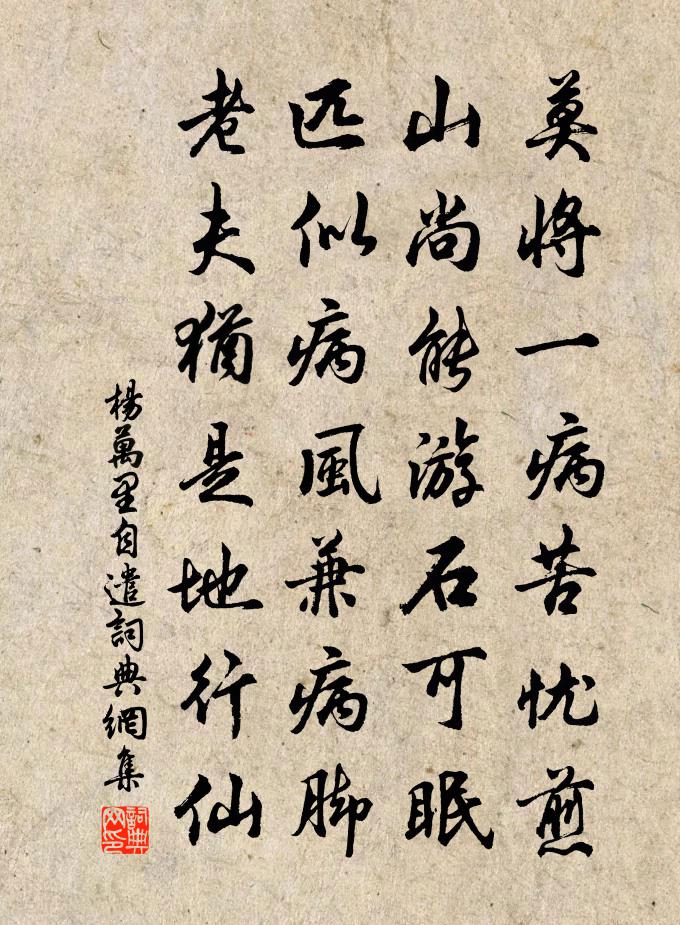 莫将一病苦忧煎
山尚能游石可眠
匹似病風兼病脚
老夫猶是地行仙
楊萬里自遣詞典網集
詞典
网印